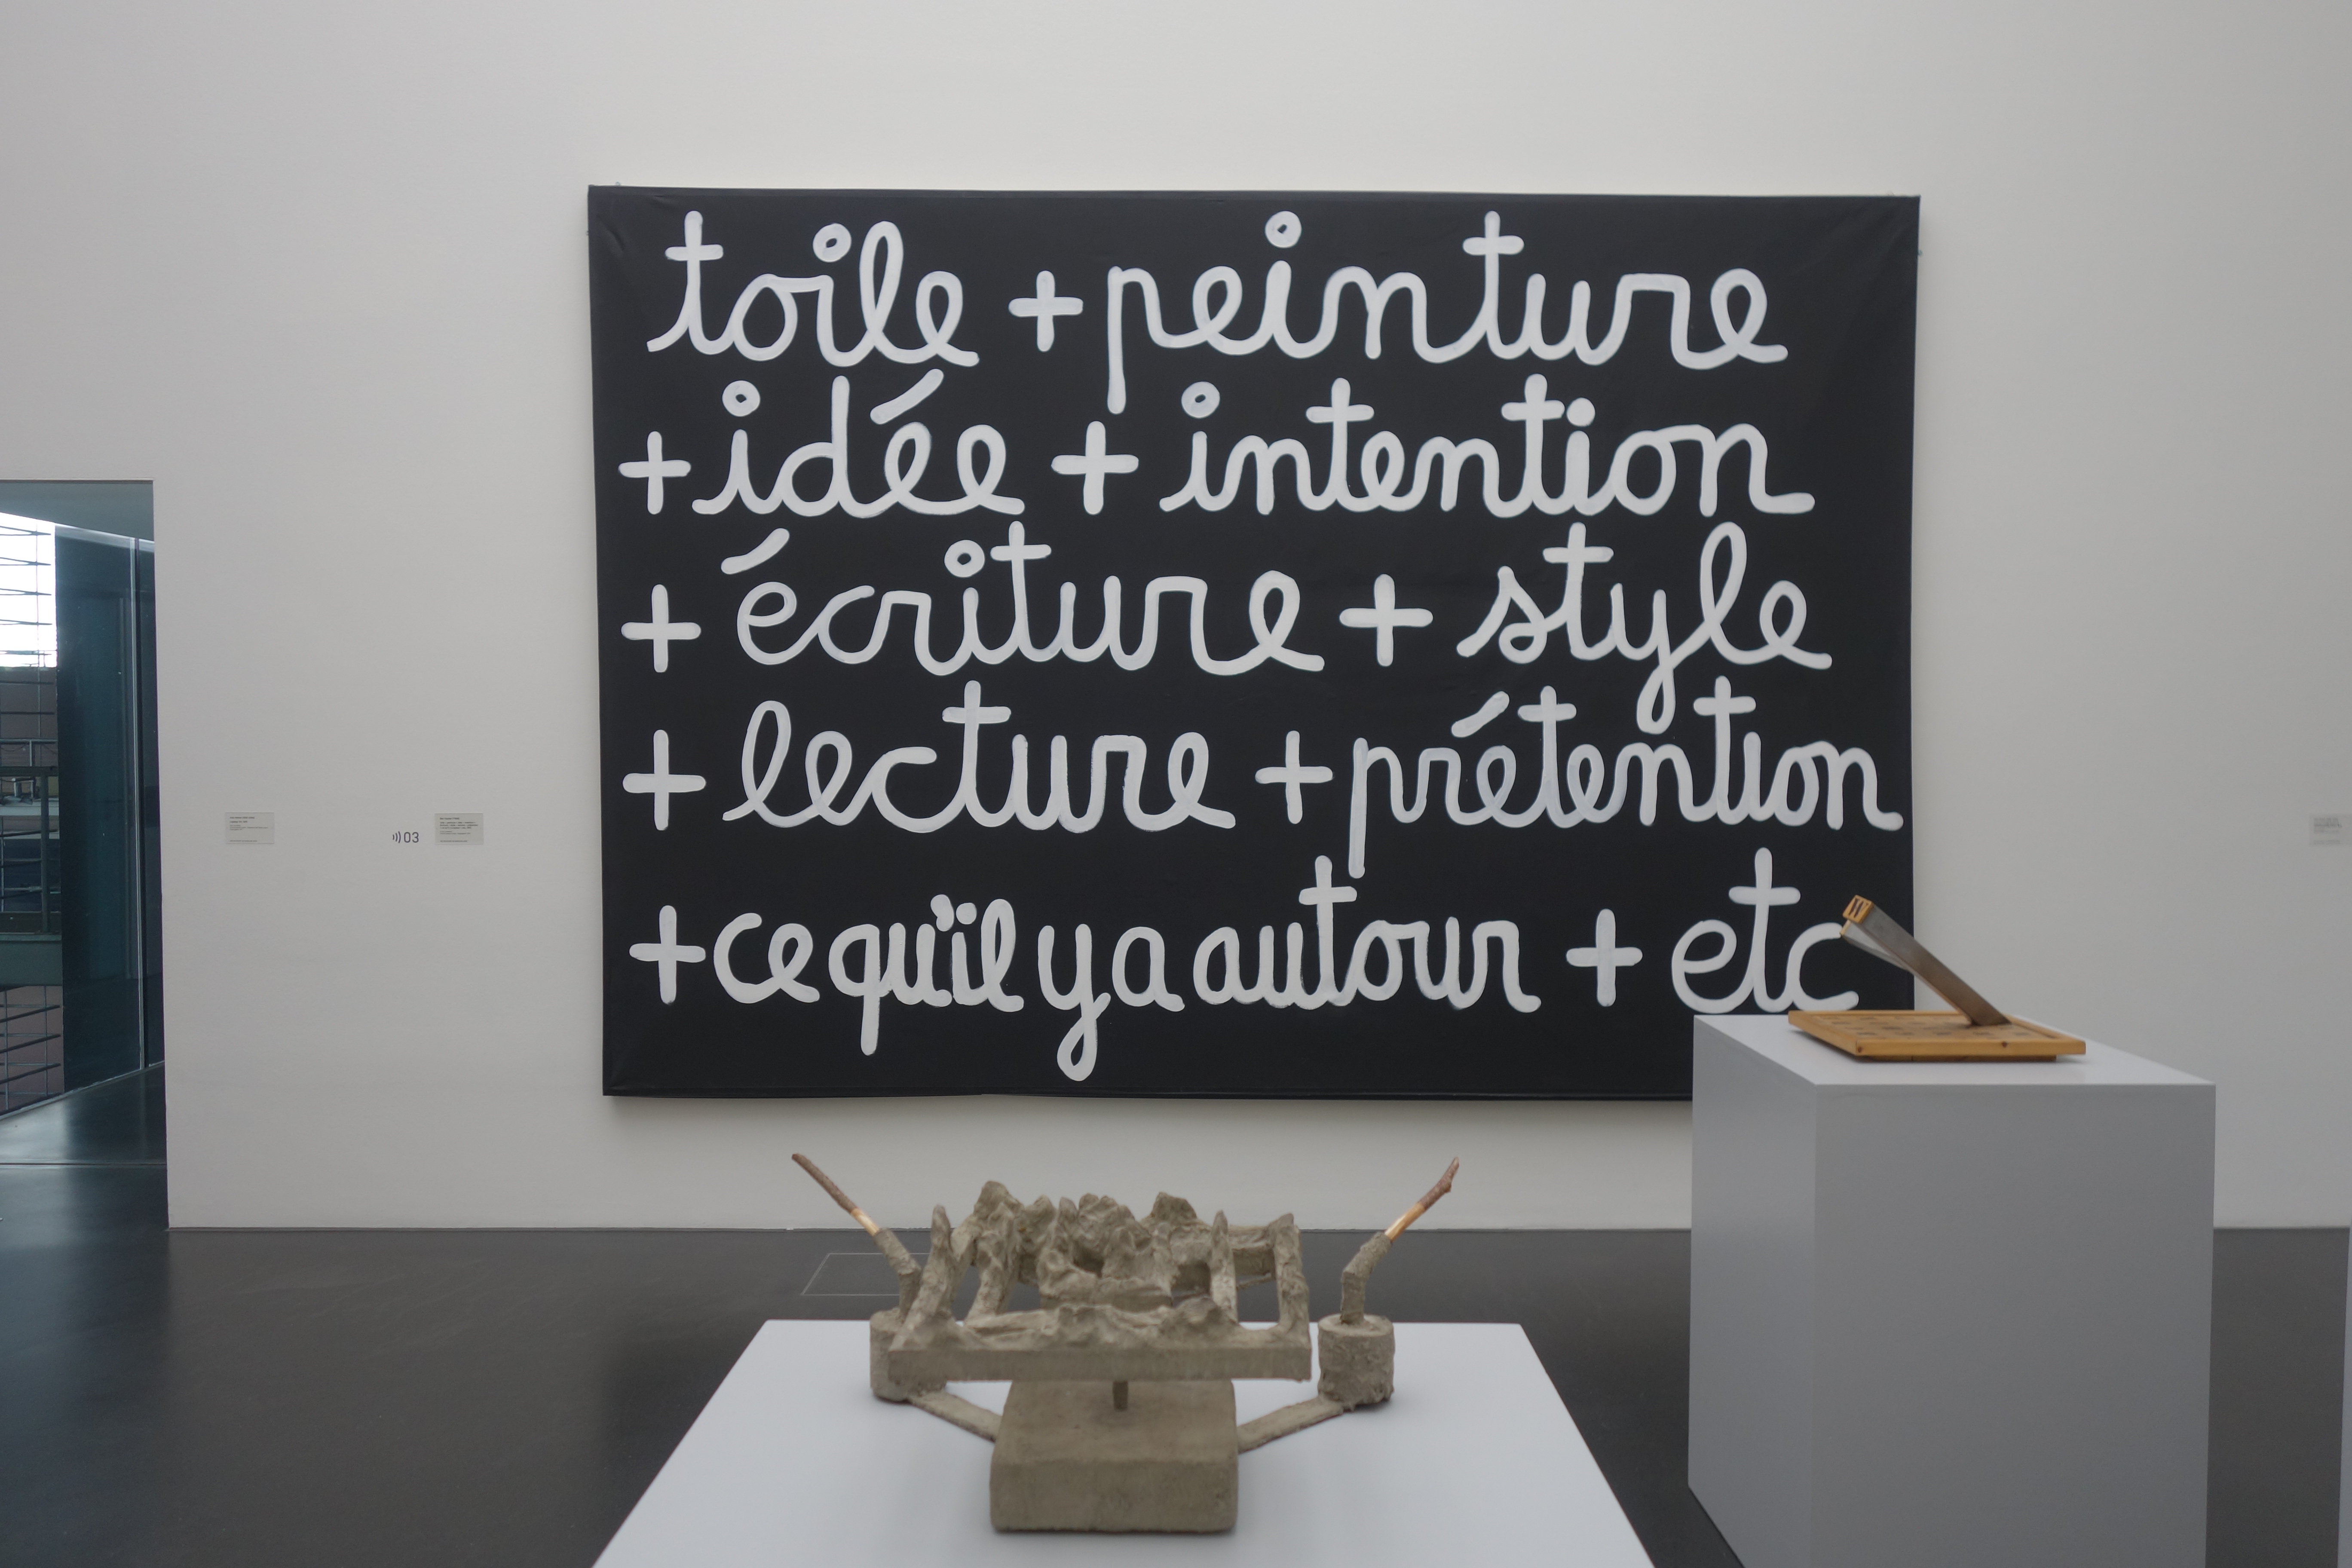 toile + peinture
+ idée + intention
+ écriture + style
+ lecture + prétention
+ ce qu'il y a autour + etc
03